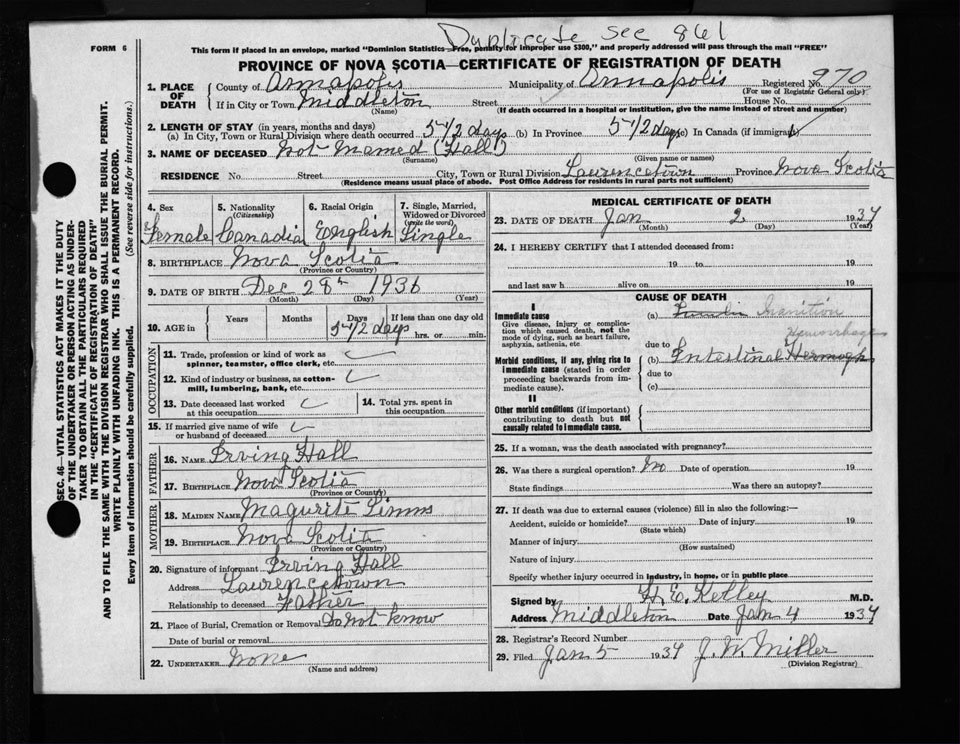 Duplicate see 861
FORM 6
This form if placed in an envelope, marked "Dominion Statistics—Free, penalty for improper use $300," and properly addressed will pass through the mail "FREE"
PROVINCE OF NOVA SCOTIA—CERTIFICATE OF REGISTRATION OF DEATH
1. PLACE OF DEATH County of Annapolis Municipality of Annapolis Registered No. 970
(For use of Registrar General only)
If in City or Town Middleton Street House No.
(Name) (If death occurred in a hospital or institution, give the name instead of street and number)
2. LENGTH OF STAY (in years, months and days)
(a) In City, Town or Rural Division where death occurred 5 1/2 days (b) In Province 5 1/2 days (c) In Canada (if immigrant)
3. NAME OF DECEASED Not Named (Hall)
(Surname) (Given name or names)
RESIDENCE No. Street City, Town or Rural Division Laurencetown Province Nova Scotia
(Residence means usual place of abode. Post Office Address for residents in rural parts not sufficient)
4. Sex 5. Nationality (Citizenship) 6. Racial Origin 7. Single, Married, Widowed or Divorced (write the word)
Female Canadia English Single
8. BIRTHPLACE Nova Scotia
(Province or Country)
9. DATE OF BIRTH Dec 28th 1936
(Month) (Day) (Year)
10. AGE in Years Months Days If less than one day old
5 1/2 days hrs. or min.
OCCUPATION
11. Trade, profession or kind of work as spinner, teamster, office clerk, etc.
12. Kind of industry or business, as cotton-mill, lumbering, bank, etc.
13. Date deceased last worked at this occupation 14. Total yrs. spent in this occupation
15. If married give name of wife or husband of deceased
FATHER
16. NAME Irving Hall
17. BIRTHPLACE Nova Scotia
(Province or Country)
MOTHER
18. MAIDEN NAME Magurite Simms
19. BIRTHPLACE Nova Scotia
(Province or Country)
20. Signature of informant Irving Hall
Address Laurencetown
Relationship to deceased Father
21. Place of Burial, Cremation or Removal Do not know
Date of burial or removal
22. UNDERTAKER None
(Name and address)
MEDICAL CERTIFICATE OF DEATH
23. DATE OF DEATH Jan 2 1937
(Month) (Day) (Year)
24. I HEREBY CERTIFY that I attended deceased from:
19 to 19
and last saw h alive on 19
CAUSE OF DEATH
I
Immediate cause
Give disease, injury or complication which caused death, not the mode of dying, such as heart failure, asphyxia, asthenia, etc
(a) Inanition
Hemorrhage
due to
Morbid conditions, if any, giving rise to immediate cause (stated in order proceeding backwards from immediate cause).
(b) Intestinal
due to
(c)
II
Other morbid conditions (if important) contributing to death but not causally related to immediate cause.
25. If a woman, was the death associated with pregnancy?
26. Was there a surgical operation? No Date of operation 19
State findings Was there an autopsy?
27. If death was due to external causes (violence) fill in also the following:—
Accident, suicide or homicide? Date of injury 19
(State which)
Manner of injury
(How sustained)
Nature of injury
Specify whether injury occurred in industry, in home, or in public place
Signed by H. E. Kelley M.D.
Address Middleton Date Jan 4 1937
28. Registrar's Record Number
29. Filed Jan 5 1937 J. W. Miller
(Division Registrar)
SEC. 46—VITAL STATISTICS ACT MAKES IT THE DUTY
OF THE UNDERTAKER OR PERSON ACTING AS UNDER-
TAKER TO OBTAIN ALL THE PARTICULARS REQUIRED
IN THE "CERTIFICATE OF REGISTRATION OF DEATH"
AND TO FILE THE SAME WITH THE DIVISION REGISTRAR WHO SHALL ISSUE THE BURIAL PERMIT.
WRITE PLAINLY WITH UNFADING INK. THIS IS A PERMANENT RECORD.
Every item of information should be carefully supplied. (See reverse side for instructions.)